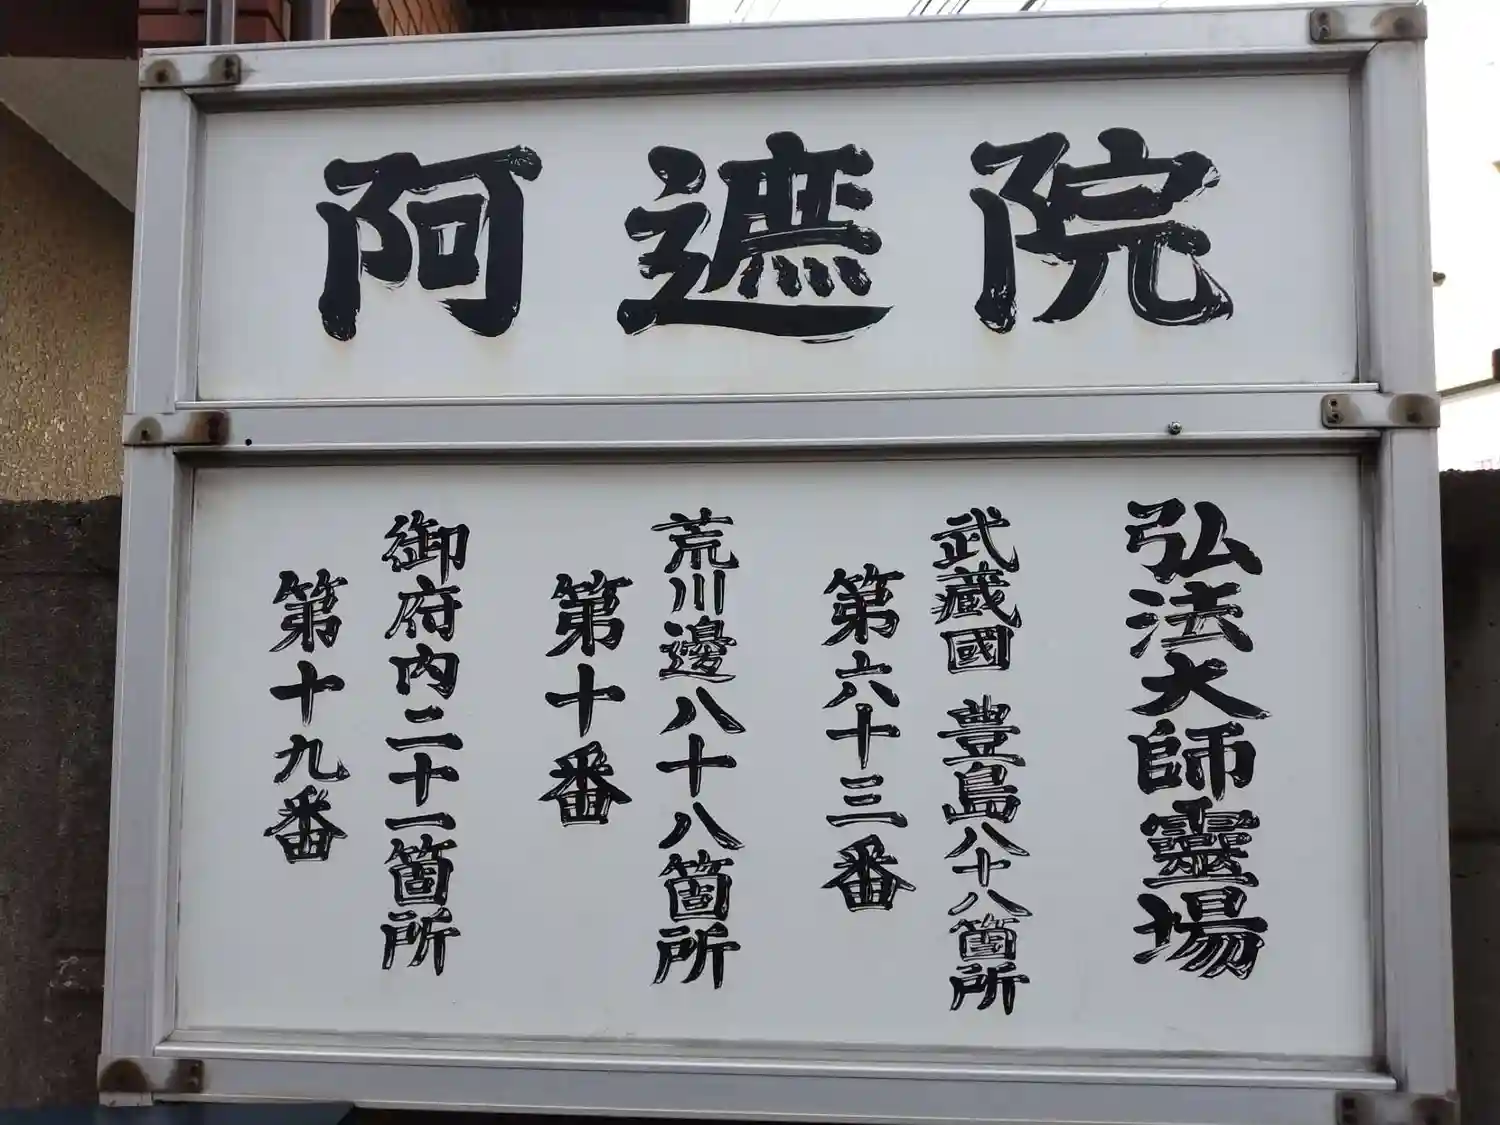 阿遮院
弘法大師靈場
武蔵國 豊島八十八箇所
第六十三番
荒川邊八十八箇所
第十番
御府内二十一箇所
第十九番